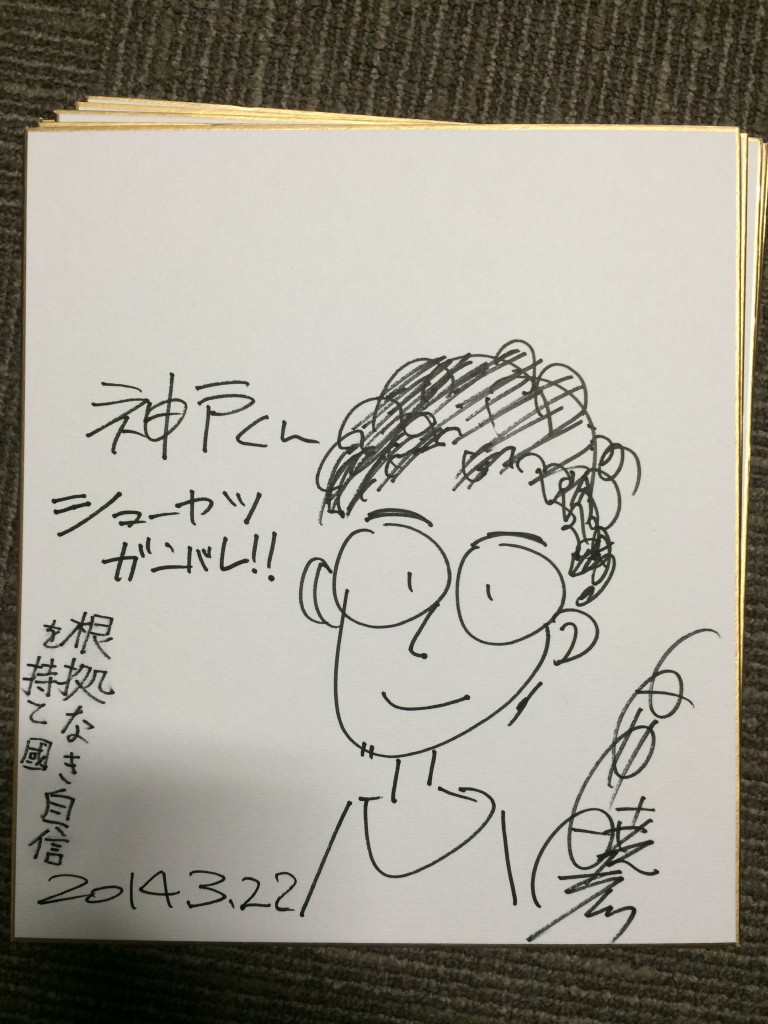 神戸くん
シューカツ
ガンバレ!!
根拠なき自信
を持て國
2014.3.22